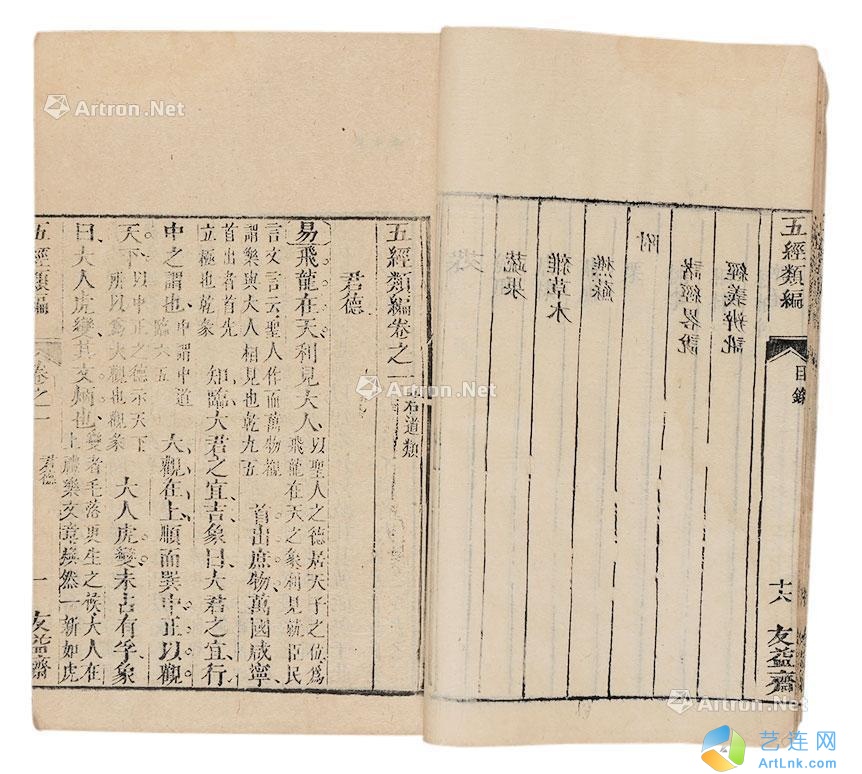 五經類編 目錄 十六 友益齋
經義辨訛
諸經畧說
附
樵蘇
雜草木
蔬果
五經類編卷之一 君道類
君德
易飛龍在天利見大人 以聖人之德居天子之位為飛龍在天之象利見就臣民
言文言云聖人作而萬物覩謂樂與大人相見也乾九五 首出庶物萬國咸寧
首出者首先立極也乾彖 知臨大君之宜吉象曰大君之宜行
中之謂也 中謂中道臨六五 大觀在上順而巽中正以觀
天下 以中正之德示天下所以為大觀也觀彖 大人虎變未占有孚象
曰大人虎變其文炳也 變者毛落更生之候大人在上禮樂文章煥然一新如虎
五經類編 卷之一 君德 一 友益齋
Artron.Net
Artron.Net
Artron.Net
Artron.Net
艺连网
ArtLnk.com